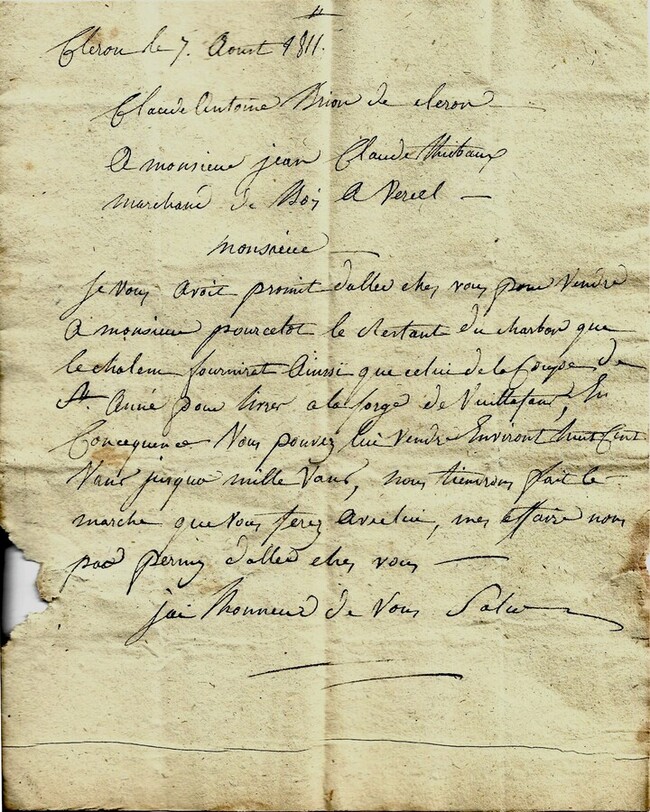 Cleron le 7. Aoust 1811.
Claude Antoine Brion de cleron
A monsieur jean Claude Thiebaux
marchand de Bois A Vercel
monsieur
je vous avoit promit daller ches vous pour Vendre
A monsieur pourcelot le restant du charbon que
le chalem fournirat Ainssi que celui de la Coupe de
St. Anne pour livrer a la forge de Vuillafans, En
Concequence Vous pouvez lui vendre Environt huit Cent
Vans jusqua mille Vans, nous tiendrons fait le
marche que vous ferez avec lui, mes affaire nons
pas permis daller ches vous
jai lhonneur de vous Salue